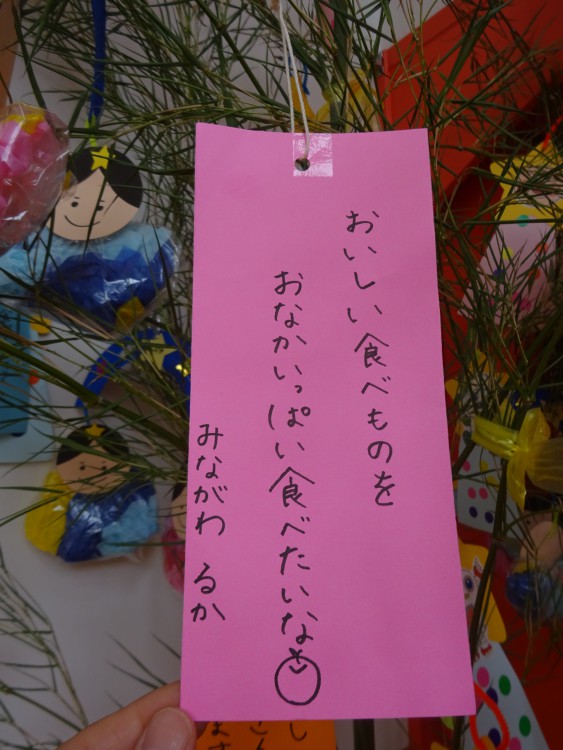 おいしい食べものを
おなかいっぱい食べたいな
みながわ るか